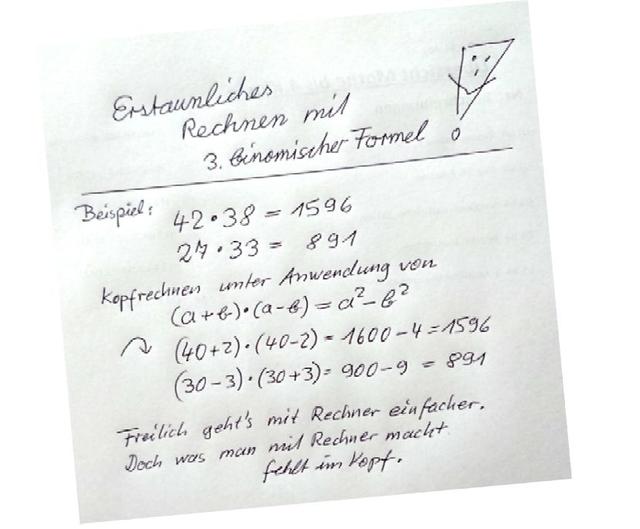 Erstaunliches
Rechnen mit
3. binomischer Formel
Beispiel: 42 · 38 = 1596
27 · 33 = 891
Kopfrechnen unter Anwendung von
(a+b)·(a-b) = a²-b²
(40+2)·(40-2) = 1600-4 = 1596
(30-3)·(30+3) = 900-9 = 891
Freilich geht's mit Rechner einfacher.
Doch was man mit Rechner macht
fehlt im Kopf.